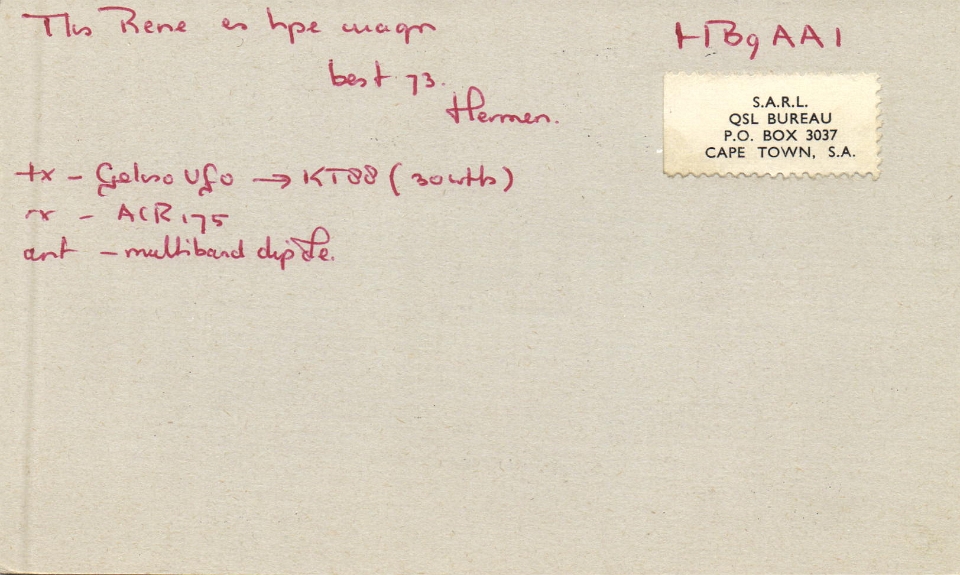 Tks Rene es hpe cuagn
best 73.
Hermen.
HB9AAI
S.A.R.L.
QSL BUREAU
P.O. BOX 3037
CAPE TOWN, S.A.
tx - Geloso Vfo → KT88 (30 wtts)
rx - ACR 175
ant - multiband dipole.